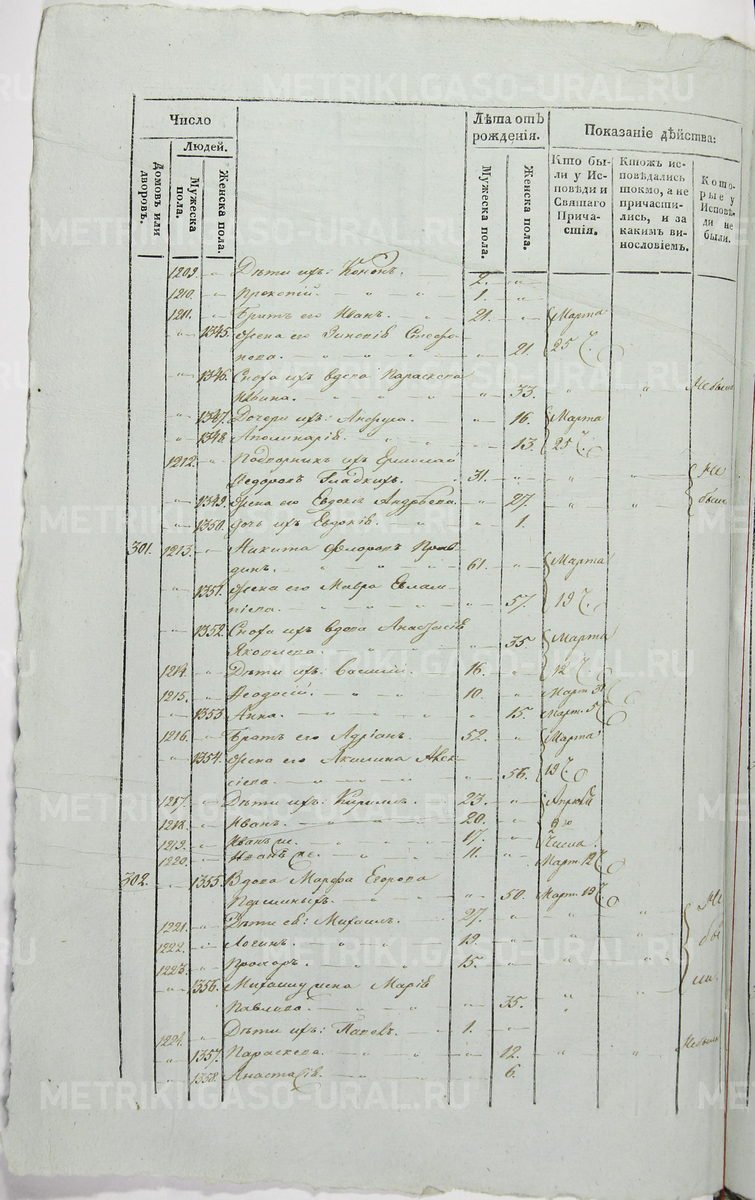 Число
Людей.
Домовъ или дворовъ.
Мужеска пола.
Женска пола.
Лѣта отъ рожденія.
Мужеска пола.
Женска пола.
Показаніе дѣйства:
Кто были у Исповѣди и Святаго Причастія.
Ктожъ исповѣдались токмо, а не причастились, и за какимъ винословіемъ.
Которые у Исповѣди не были.
1209. Дѣти ихъ: Кононъ. 2.
1210. 1.
1211. Братъ его Иванъ. 21. Марта
1345. Жена его
21. 25
1346. Сноха ихъ вдова Параскева
33. Не были
1347. Дочери ихъ: 16. Марта
1348. Аполинарія. 13. 25
1212. Подворникъ ихъ Ермолай
Ѳедоровъ Гладкихъ. 31. Не
1349. Жена его Евдокія Андрѣева. 27. были
1350. Дочь ихъ Евдокія. 1.
301. 1213. Никита Ѳедоровъ
61. Марта
1351. Жена его Мавра Евлам-
піева. 57. 19
1352. Сноха ихъ вдова Анастасія
Яковлева. 35 Марта
1214. Дѣти ихъ: Василій. 16. 12
1215. Ѳеодосій. 10. Март
1353. Анна. 15. Март. 5
1216. Братъ его Адріанъ. 52. Марта
1354. Жена его Акилина Алек-
сіева. 56. 19
1217. Дѣти ихъ: Кирилъ. 23. Апрѣля
1218. Иванъ. 20. 9го
1219. Иванъ 17. Числа
1220. Иванъ 11. Март. 12
302. 1355. Вдова Марфа Егорова
50. Март. 19
1221. Дѣти ея: Михаилъ. 27. Не
1222. Логинъ. 19. бы
1223. Прохоръ. 15. ли.
1356. Михаилу жена Марія
Павлова. 35.
1224. Дѣти ихъ: 1.
1357. Параскева. 12. Не были
1358. Анастасія. 6.
METRIKI.GASO-URAL.RU